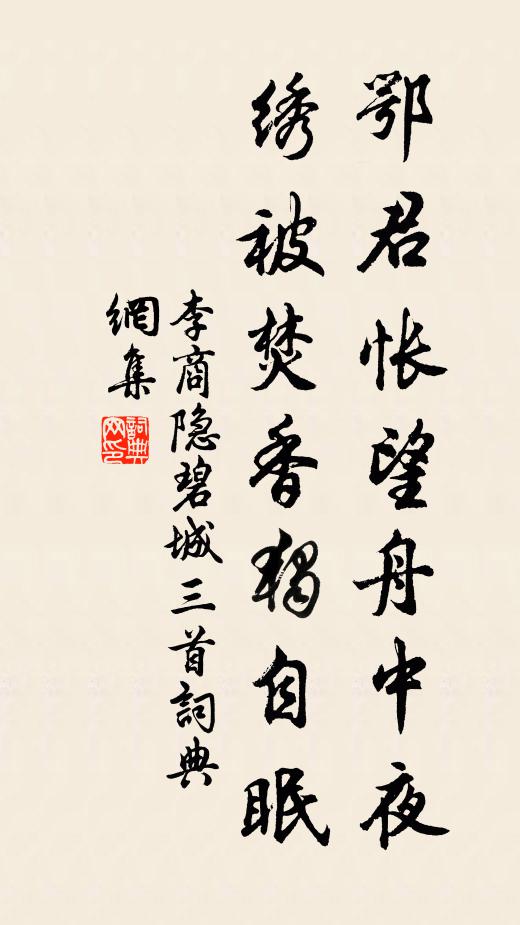 鄂君怅望舟中夜
绣被焚香独自眠
李商隐碧城三首詞典
網集
詞典
网印